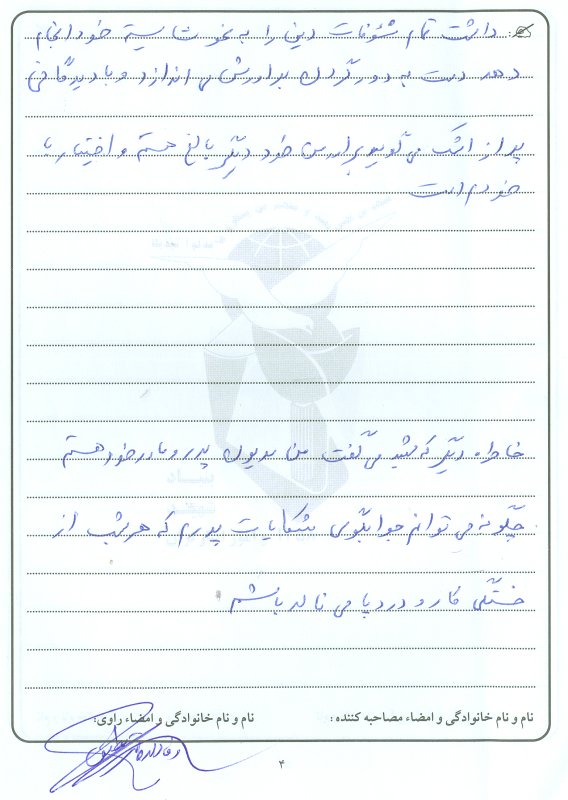 داشت تمام شئونات دینی را به نحو شایسته خود انجام
دهد دست به دور گردن برادرش می اندازد و با دیدگانی
پر از اشک می گوید برادر من خود دیگر بالغ هستم و اختیار با
خودم است
خاطره دیگر که شهید می گفت من مدیون پدر و مادر خود هستم
چگونه می توانم جوابگوی شکایات پدرم که هر شب از
خستگی کار و درد پا می نالد باشم
نام و نام خانوادگی و امضاء مصاحبه کننده :
نام و نام خانوادگی و امضاء راوی:
۴